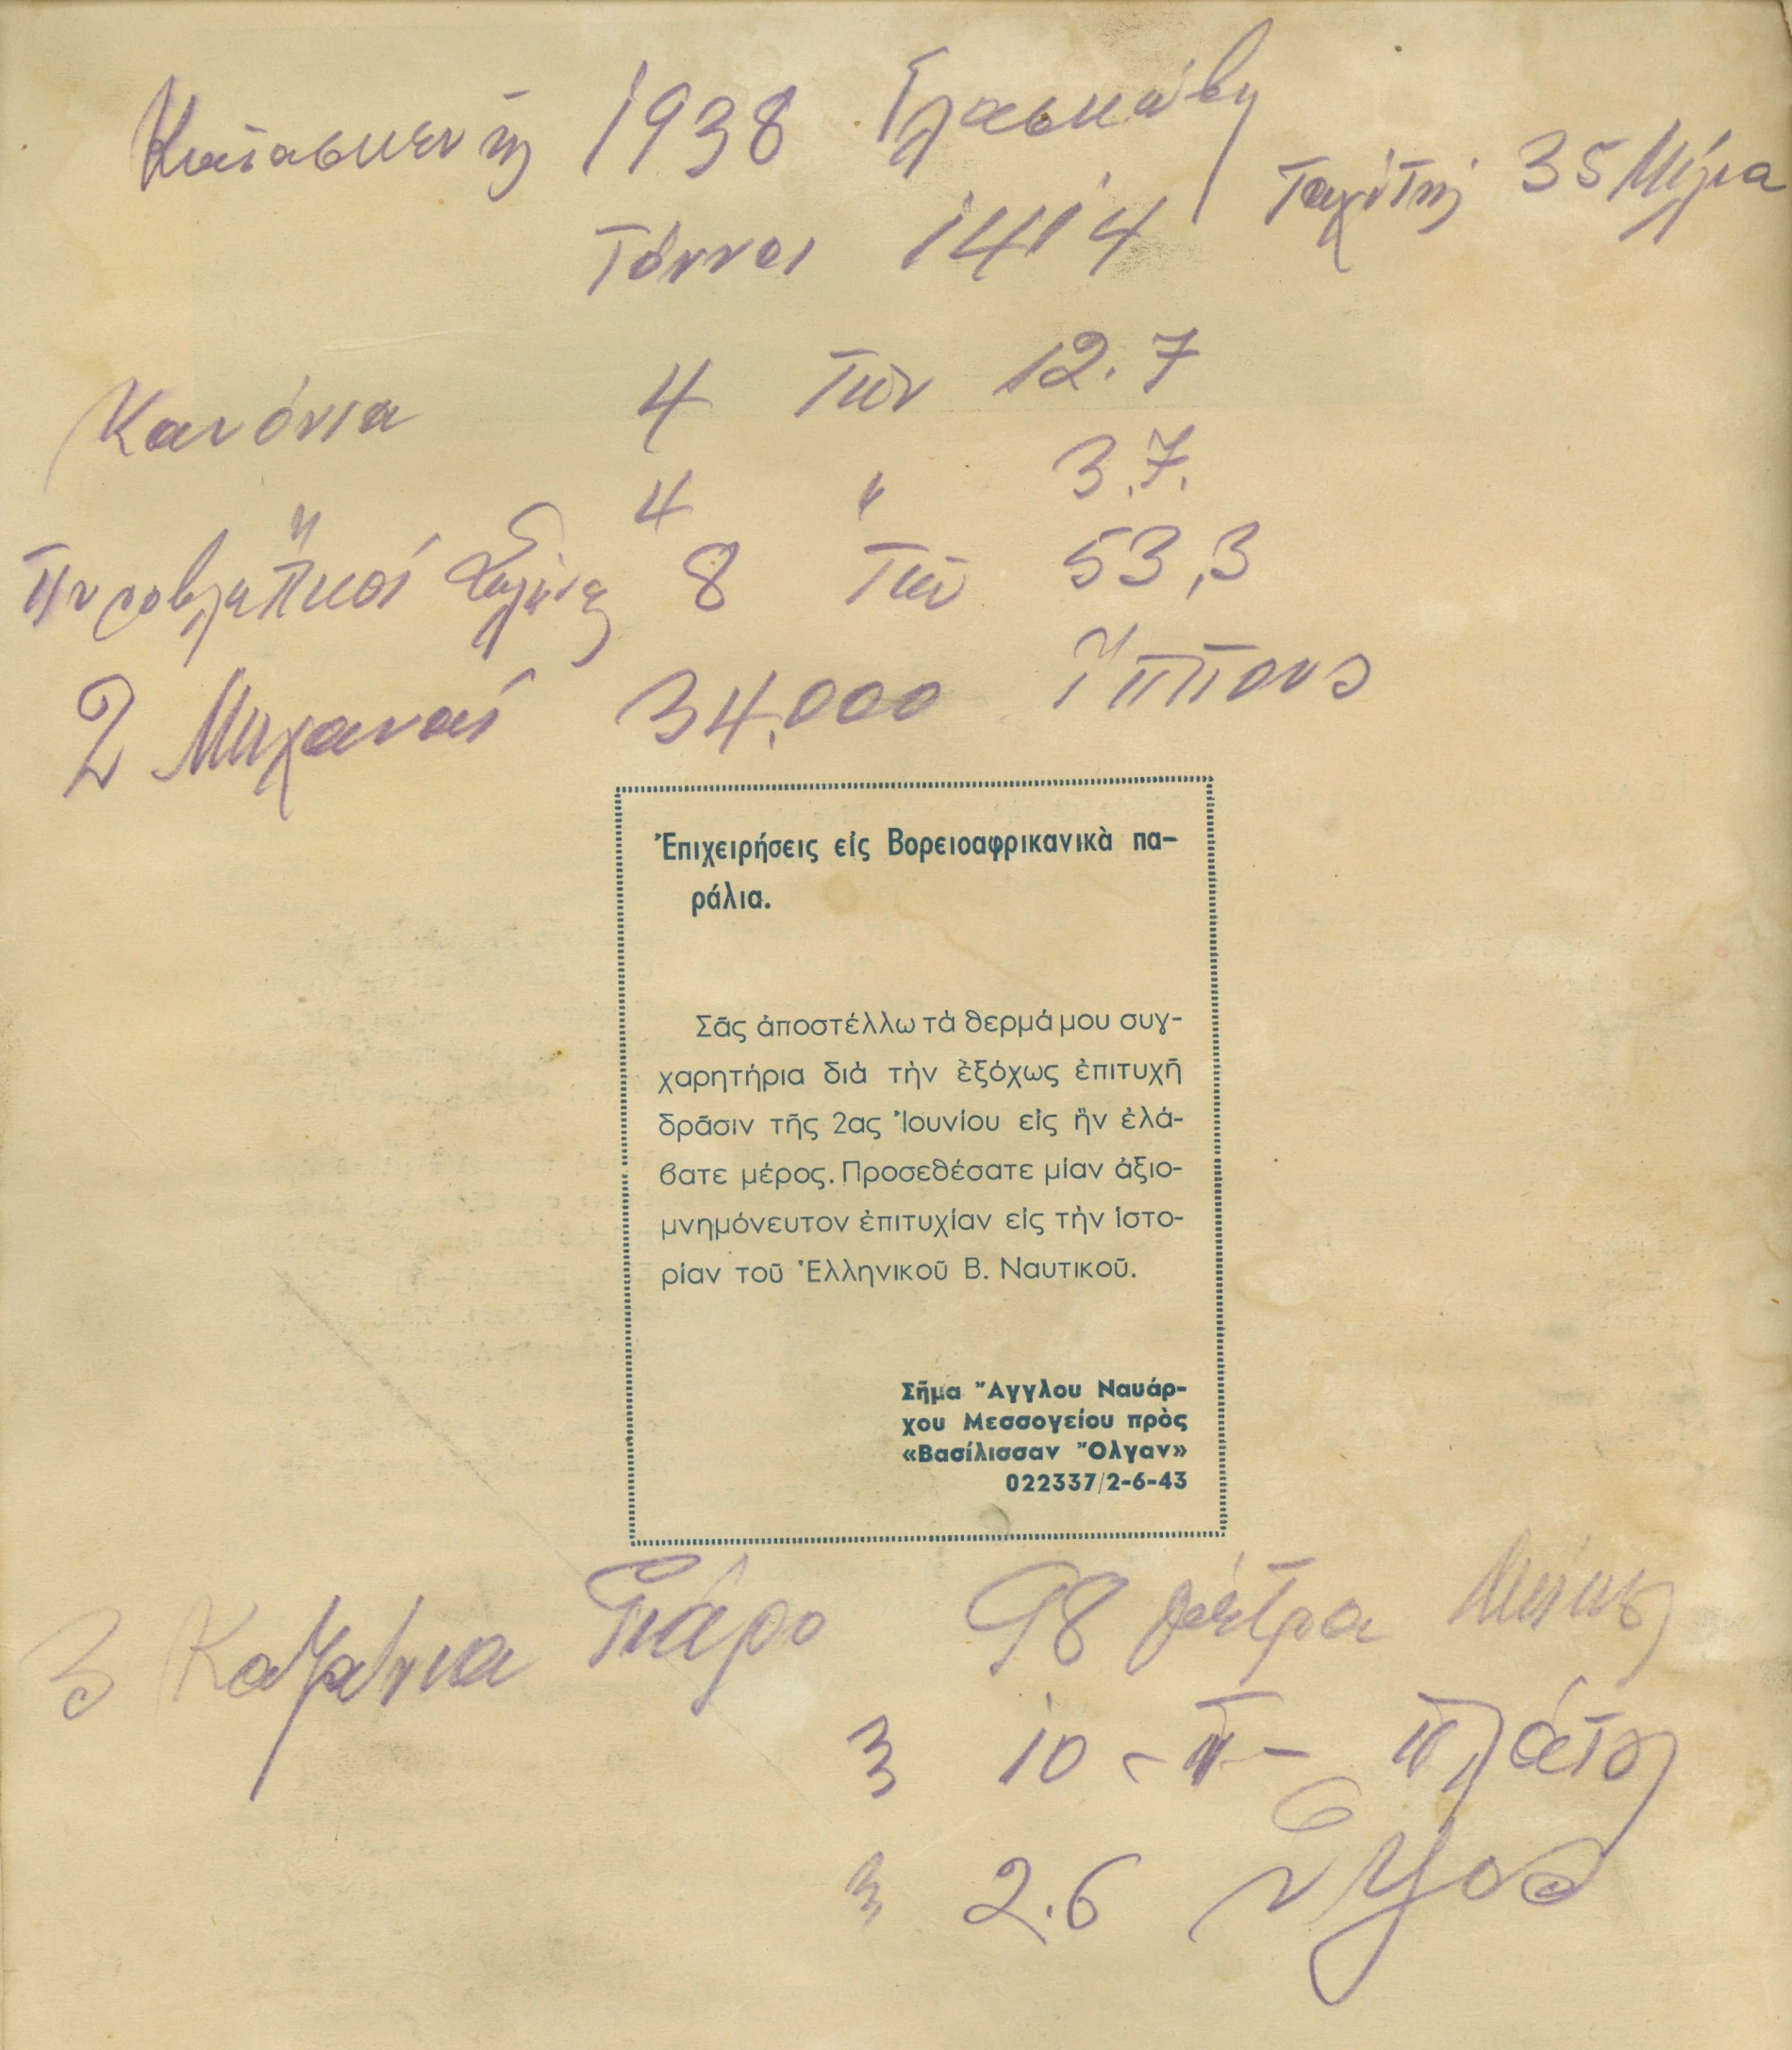 Κατασκευής 1938 Γλασκώβη
Ταχύτης 35 Μίλια
Τόννοι 1414
Κανόνια 4 τῶν 12.7
4 " 3.7.
Πυροβλητικοί Σωλήνες 8 τῶν 53,3
2 Μηχαναί 34.000 ἵππους
Ἐπιχειρήσεις εἰς Βορειοαφρικανικὰ πα-
ράλια.
Σᾶς ἀποστέλλω τὰ θερμά μου συγ-
χαρητήρια διὰ τὴν ἐξόχως ἐπιτυχῆ
δρᾶσιν τῆς 2ας Ἰουνίου εἰς ἣν ἐλά-
βατε μέρος. Προσεθέσατε μίαν ἀξιο-
μνημόνευτον ἐπιτυχίαν εἰς τὴν ἱστο-
ρίαν τοῦ Ἑλληνικοῦ Β. Ναυτικοῦ.
Σῆμα Ἄγγλου Ναυάρ-
χου Μεσσογείου πρὸς
«Βασίλισσαν Ὄλγαν»
022337/2-6-43
3 Καζάνια Γιάρο 98 μέτρα Μήκος
3 10 -"- πλάτος
3 2.6 ὕψος